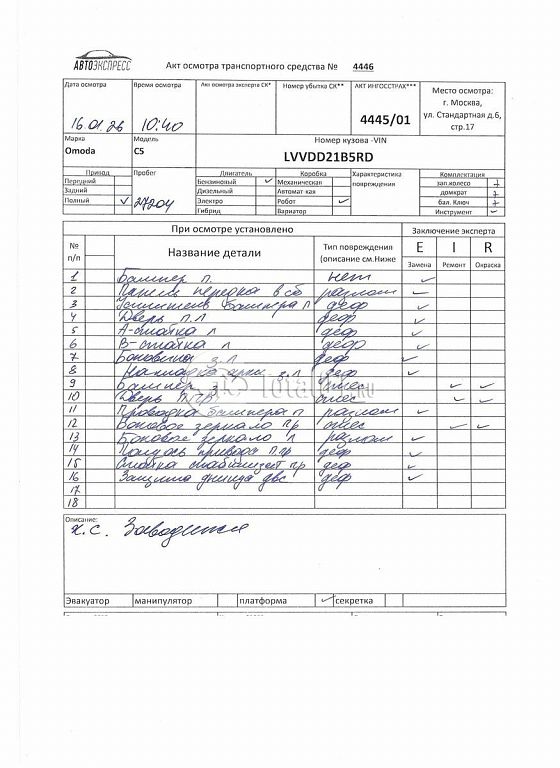 АВТОЭКСПРЕСС
Акт осмотра транспортного средства № 4446
Дата осмотра Время осмотра Акт осмотра эксперта СК* Номер убытка СК** АКТ ИНГОССТРАХ*** Место осмотра:
16.01.26 10:40 4445/01 г. Москва,
ул. Стандартная д.6,
стр.17
Марка Модель Номер кузова -VIN
Omoda C5 LVVDD21B5RD
Привод Пробег Двигатель Коробка Характеристика повреждения Комплектация
Передний Бензиновый ✓ Механическая зап.колесо
Задний Дизельный Автомат кая домкрат
Полный ✓ 27204 Электро Робот ✓ бал. Ключ
Гибрид Вариатор Инструмент ✓
При осмотре установлено Заключение эксперта
№ п/п Название детали Тип повреждения (описание см.Ниже E I R
Замена Ремонт Окраска
1 Бампер п. нет ✓
2 Панель передка в сб разлом ✓
3 Усилитель бампера п деф ✓
4 Дверь п.л деф ✓
5 А-стойка л деф ✓
6 В-стойка л деф ✓
7 Боковина з.л деф ✓
8 Накладка арки з.л деф ✓
9 Бампер з ✓ ✓
10 Дверь ✓ ✓
11 Проводка бампера п разлом ✓
12 Боковое зеркало пр ✓ ✓
13 Боковое зеркало л разлом ✓
14 Полуось привода п.пр деф ✓
15 Стойка стабилизат пр деф ✓
16 Защита днища двс деф ✓
17
18
Описание:
х.с. Заводится
Эвакуатор манипулятор платформа ✓ секретка